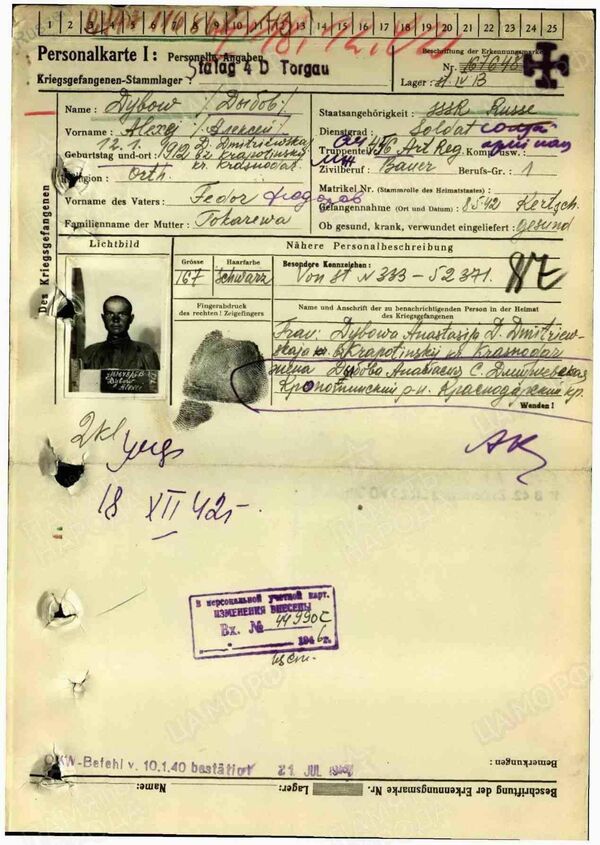 1 2 3 4 5 6 7 8 9 10 11 12 13 14 15 16 17 18 19 20 21 22 23 24 25
Personalkarte I: Personelle Angaben
Kriegsgefangenen-Stammlager: Stalag 4 D Torgau
Beschriftung der Erkennungsmarke
Nr.
Lager: IV B
Des Kriegsgefangenen
Name: Dybow /Дыбов/
Vorname: Alexej /Алексей/
Geburtstag und -ort: 12.1.1912 D. Dmitriewskaja
bz. Krapotinskij
kr. Krasnodar
Religion: Orth.
Vorname des Vaters: Fedor
Familienname der Mutter: Tokarewa
Staatsangehörigkeit: SSSR Russe
Dienstgrad: Soldat солдат
Truppenteil: 456 Art Reg. Komp. usw.:
Zivilberuf: Bauer Berufs-Gr.: 1
Matrikel Nr. (Stammrolle des Heimatstaates):
Gefangennahme (Ort und Datum): 8542 Kertsch.
Ob gesund, krank, verwundet eingeliefert: gesund
Lichtbild
Nähere Personalbeschreibung
Grösse
Haarfarbe
167
Schwarz
Besondere Kennzeichen:
Von St. N 333 - 52371.
Fingerabdruck
des rechten! Zeigefingers
Name und Anschrift der zu benachrichtigenden Person in der Heimat
des Kriegsgefangenen
Frau: Dybowa Anastasija D. Dmitriew-
skaja kr. Krapotinskij kr. Krasnodar
жена Дыбова Анастасия С. Дмитриевская
Кропоткинский р-н. Краснодарский кр.
Wenden!
Dybow
Alexei
18 XII 42г.
В персональной учетной карт.
ИЗМЕНЕНИЯ ВНЕСЕНЫ
Вх. № 44990с
1946 г.
OKW-Befehl v. 10.1.40 bestätigt
21. JUL
Bemerkungen:
Beschriftung der Erkennungsmarke Nr.
Lager:
Name:
ЦАМО РФ